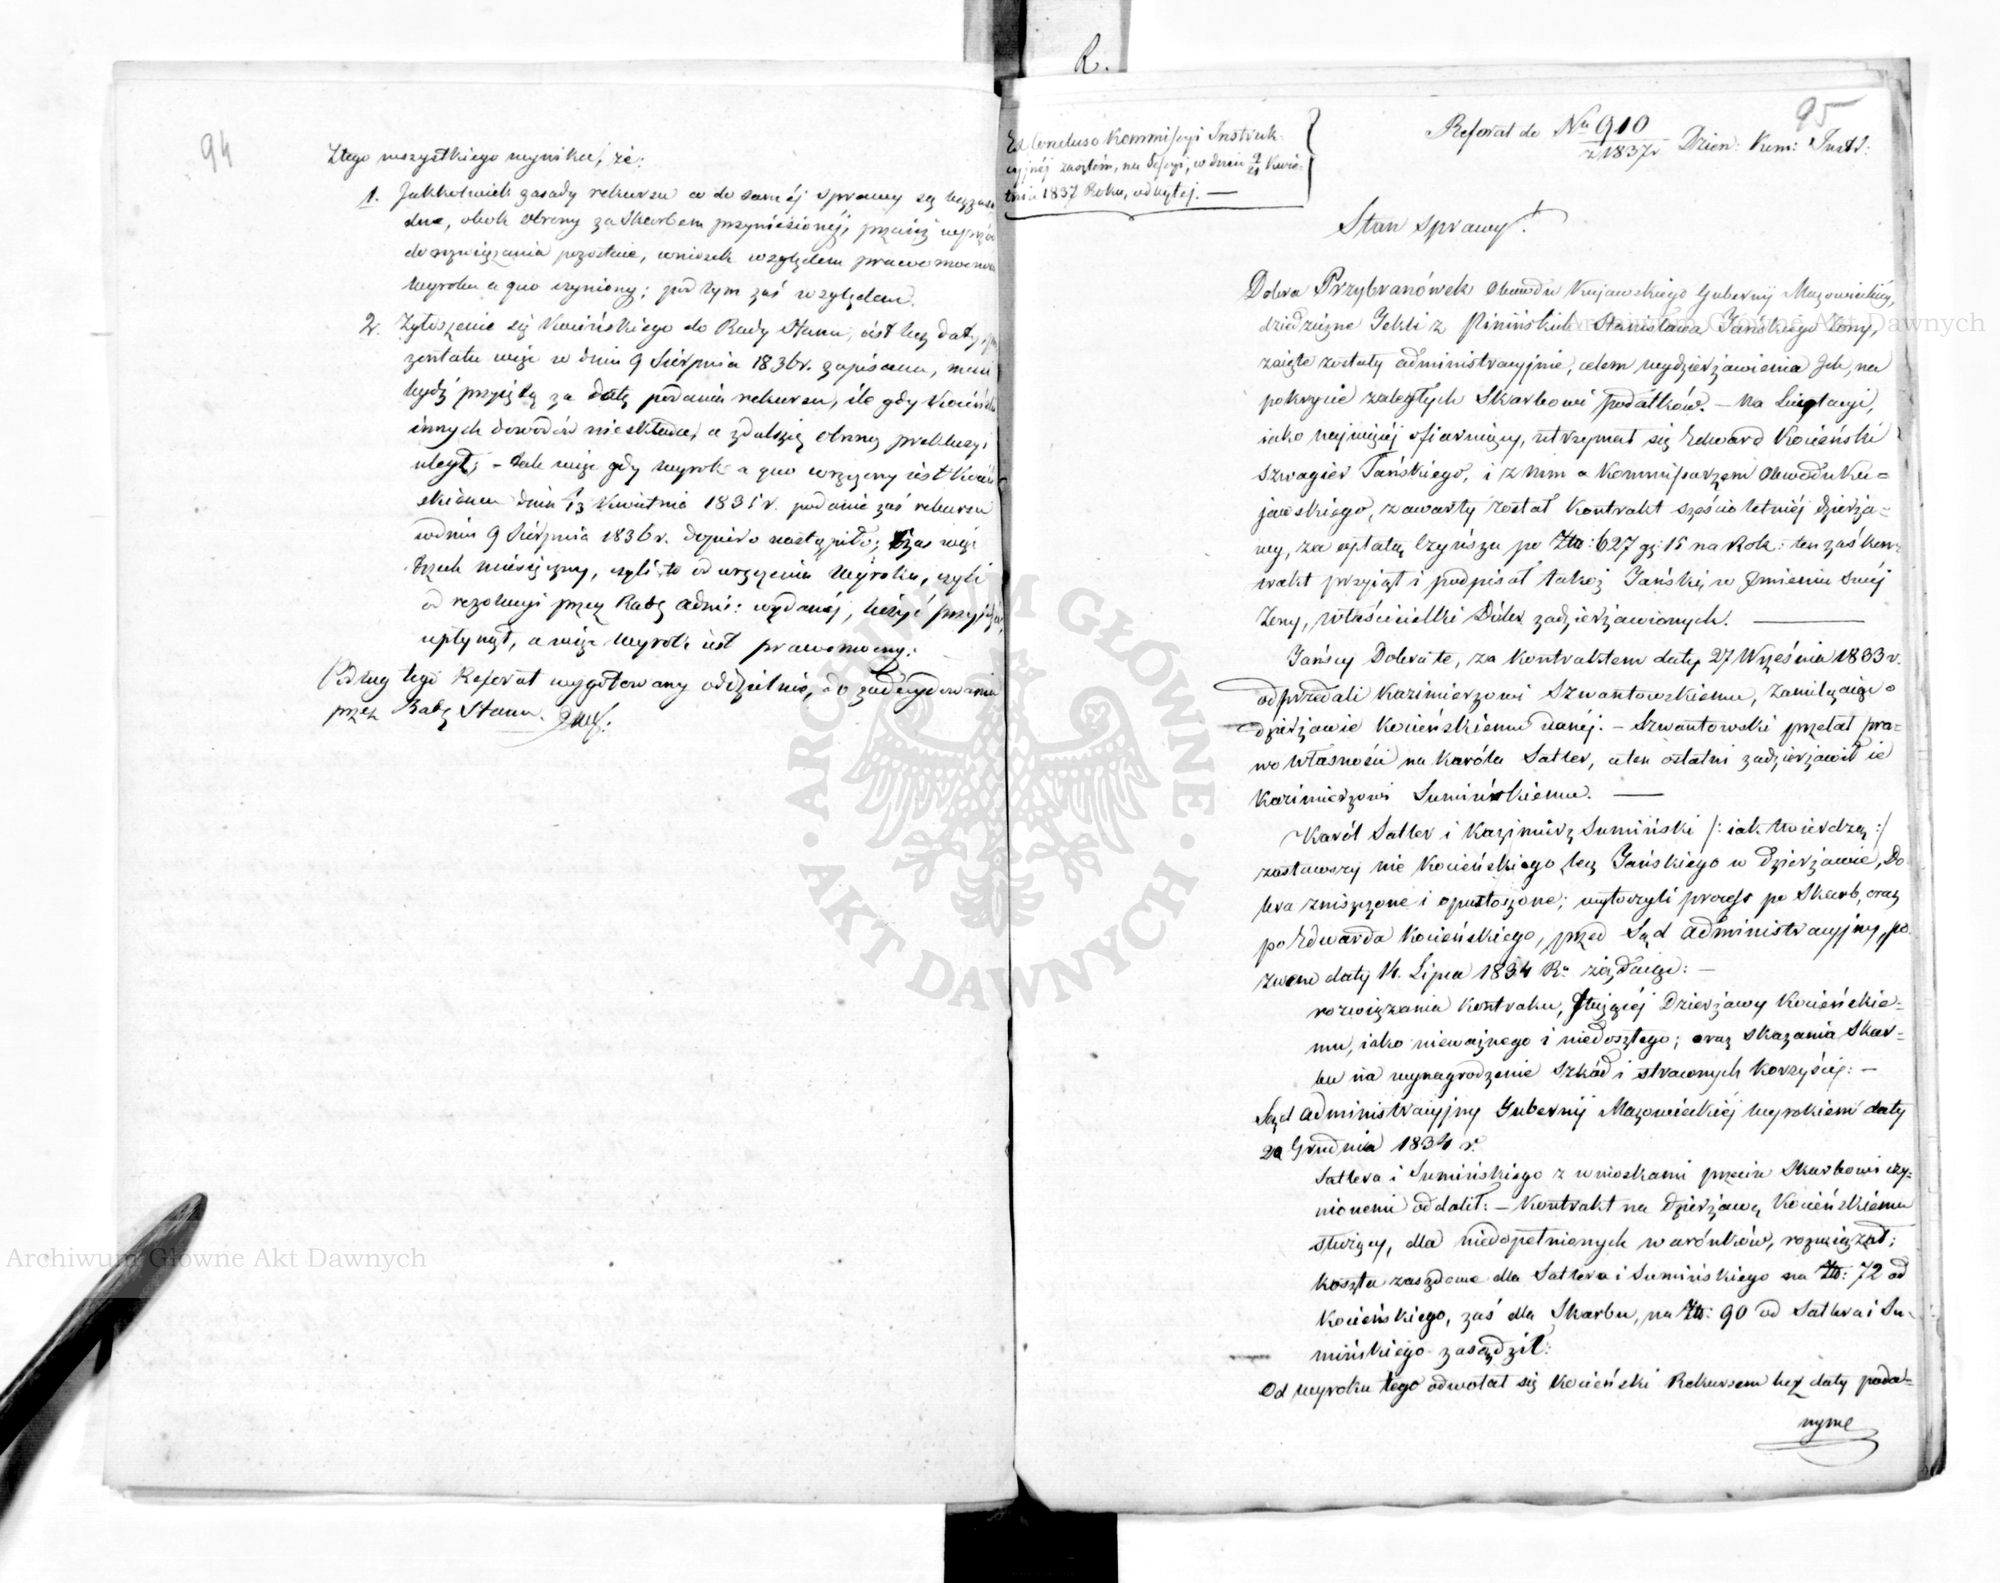 94
Z tego wszystkiego wynika, że:
1. Jakkolwiek zasady rekursu co do saméj sprawy są bezzasa
dne, obok obrony za Skarbem przyniesionéj, przecież wprzód
do rozwiązania pozostaie, wniosek względem prawomocności
wyroku a quo czyniony; pod tym zaś względem.
2. Zgłoszenie się Kocieńskiego do Rady Stanu, iest bez daty,
zentata więc w dniu 9 Sierpnia 1836 r. zapisana, musi
bydź przyiętą za datę podania rekursu, ile gdy Kocieński
innych dowodów nieskłada, a zdalszéj obrony prekluzyi
uległ; – tak więc gdy wyrok a quo wręczony iest Kocień
skiemu dnia 1/13 Kwietnia 1835 r. podanie zaś rekursu
w dniu 9 Sierpnia 1836 r. dopiero nastąpiło; czas więc
trzech miesięczny, czyli to od wręczenia wyroku, czyli
od rezolucyi przez Radę Admi: wydanéj, liczyć przyidzie,
upłynął, a więc wyrok iest prawomocny.
Podług tego Referat wygotowany oddzielnie, do zadecydowania
przez Radę Stanu.
R.
95
Ex Concluso Kommissyi Instruk-
cyjnéj zaszłém, na Sessyi, w dniu 9/21 Kwie
tnia 1837 Roku, odbytéj. —
Referat do Nru 910 / z 1837 r. Dzien: Kom: Instr:
Stan sprawy.
Dobra Przybranówek Obwodu Kujawskiego Gubernii Mazowieckiéj,
dziedziczne Tekli z Pinińskich Stanisława Jańskiego żony,
zaięte zostały administracyjnie, celem wydzierżawienia Ich, na
pokrycie zaległych Skarbowi podatków. – Na Licytacyi,
iako najwięcéj ofiaruiący, utrzymał się Edward Kocieński
szwagier Jańskiego, i z nim a Kommissarzem Obwodu Ku-
jawskiego, zawarty został kontrakt sześcioletniéj dzierża-
wy, za opłatą czynszu po Złp: 627 gr: 15 na Rok: ten zaś kon-
trakt przyiął i podpisał także Jański, w Imieniu swéj
żony, właścicielki Dóbr zadzierżawionych. ———
Jańscy Dobra te, za kontraktem daty 27 Września 1833 r.
odprzedali Kazimierzowi Szwantowskiemu, zamilczaiąc o
dzierżawie Kocieńskiemu danéj. – Szwantowski przelał pra-
wo własności na Karóla Satler, a ten ostatni zadzierżawił ie
Kazimierzowi Sumińskiemu. ——
Karól Satler i Kazimierz Sumiński /: iak twierdzą :/
zastawszy nie Kocieńskiego lecz Jańskiego w dzierżawie, Do-
bra zniszczone i opustoszone; wytoczyli process po Skarb, oraz
po Edwarda Kocieńskiego, przed Sąd Administracyjny, po-
zwem daty 14. Lipca 1834 Ru żądaiąc: –
rozwiązania kontraktu, służącéj Dzierżawy Kocieńskie-
mu, iako nieważnego i niedoszłego; oraz skazania Skar-
bu na wynagrodzenie szkód i straconych korzyści: –
Sąd Administracyjny Gubernii Mazowieckiéj wyrokiem daty
20 Grudnia 1834 r.
Satlera i Sumińskiego z wnioskami przeciw Skarbowi czy-
nionemi oddalił: – Kontrakt na dzierżawę Kocieńskiemu
służący, dla niedopełnionych warónków, rozwiązał;
koszta zasądzone dla Satlera i Sumińskiego na Złp: 72 od
Kocieńskiego, zaś dla Skarbu, na Złp: 90 od Satlera i Su-
mińskiego zasądził:
Od wyroku tego odwołał się Kocieński Rekursem bez daty poda-
nym
Archiwum Główne Akt Dawnych
Archiwum Główne Akt Dawnych
ARCHIWUM GŁÓWNE · AKT DAWNYCH ·